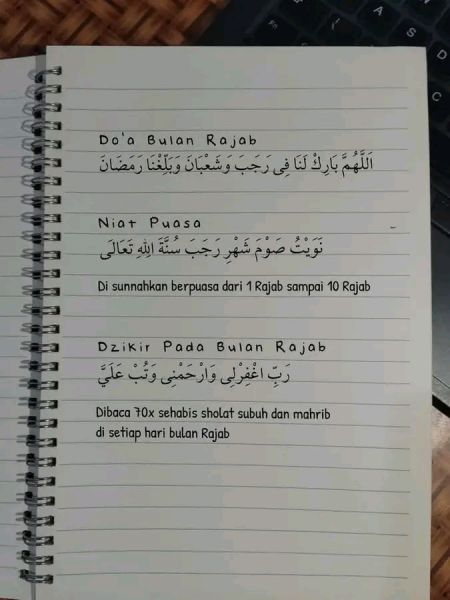 Do'a Bulan Rajab
اَللَّهُمَّ بَارِكْ لَنَا فِى رَجَبَ وَشَعْبَانَ وَبَلِّغْنَا رَمَضَانَ
Niat Puasa
نَوَيْتُ صَوْمَ شَهْرِ رَجَبَ سُنَّةً لِلهِ تَعَالَى
Di sunnahkan berpuasa dari 1 Rajab sampai 10 Rajab
Dzikir Pada Bulan Rajab
رَبِّ اغْفِرْلِى وَارْحَمْنِى وَتُبْ عَلَيَّ
Dibaca 70x sehabis sholat subuh dan mahrib
di setiap hari bulan Rajab
A
S
D
Fn